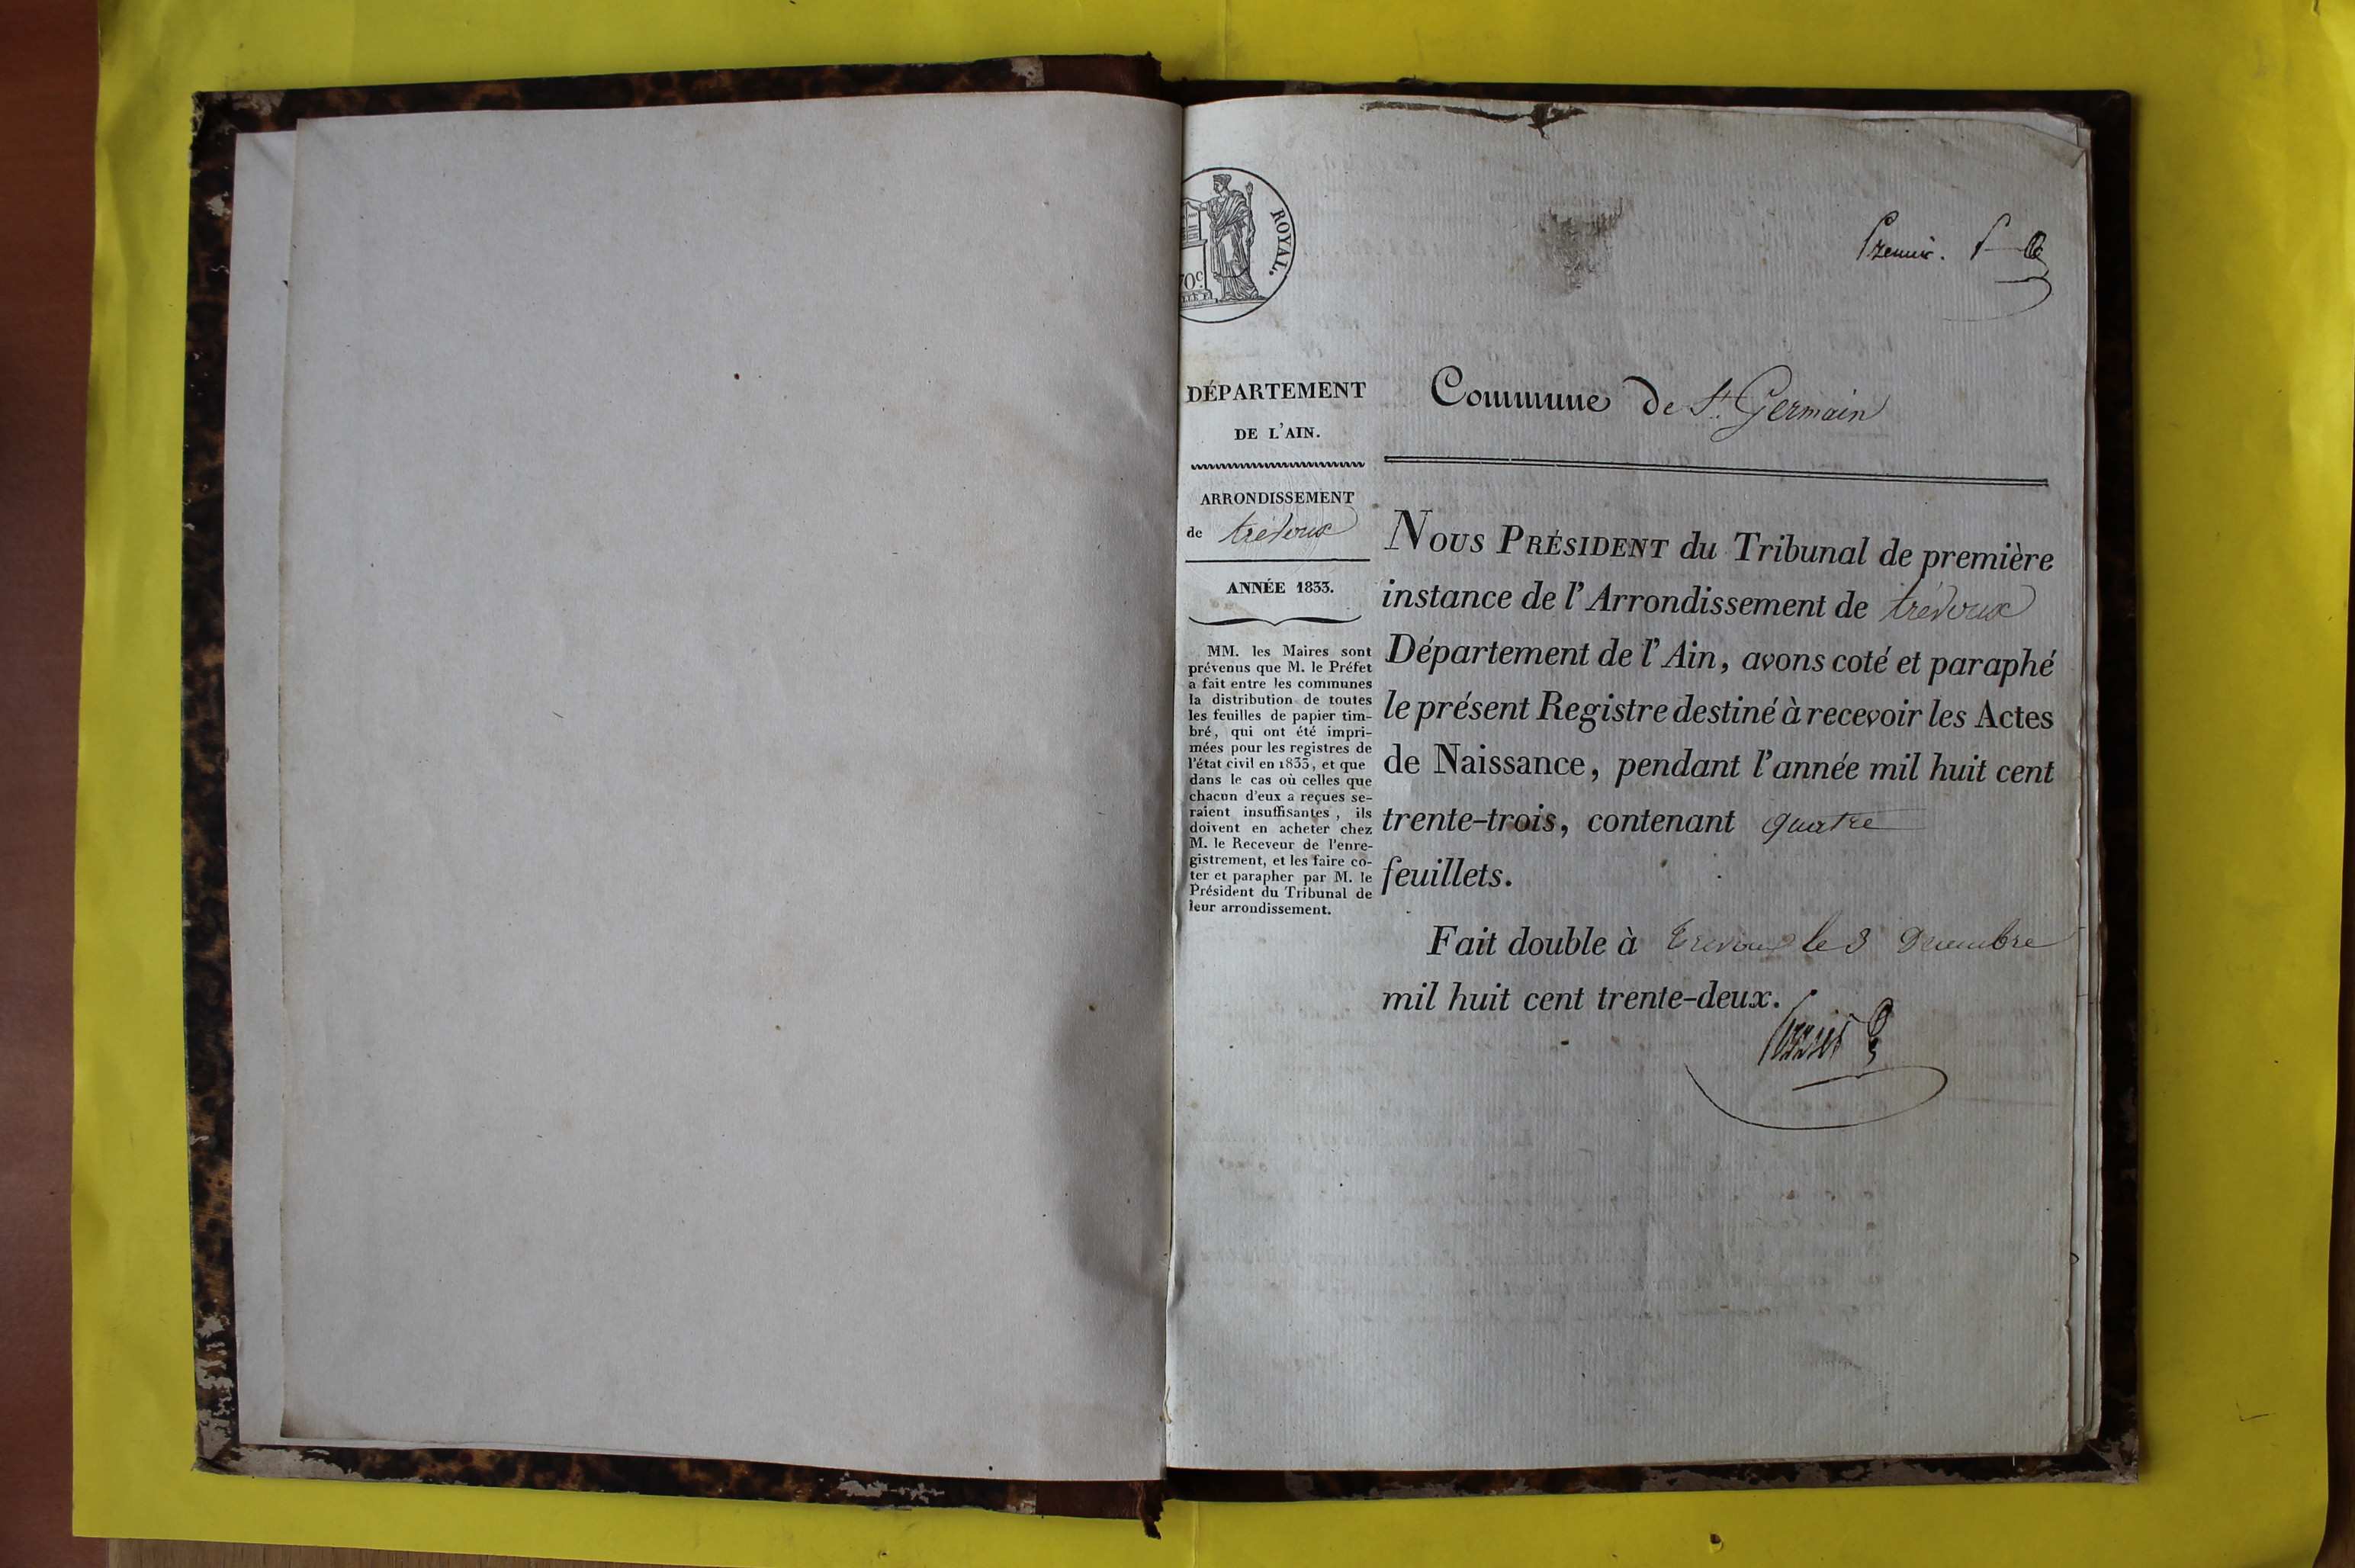 ROYAL.
70c.
Premier.
DÉPARTEMENT
DE L'AIN.
ARRONDISSEMENT
de trévoux
ANNÉE 1833.
MM. les Maires sont
prévenus que M. le Préfet
a fait entre les communes
la distribution de toutes
les feuilles de papier tim-
bré, qui ont été impri-
mées pour les registres de
l'état civil en 1833, et que
dans le cas où celles que
chacun d'eux a reçues se-
raient insuffisantes, ils
doivent en acheter chez
M. le Receveur de l'enre-
gistrement, et les faire co-
ter et parapher par M. le
Président du Tribunal de
leur arrondissement.
Commune de St. Germain
NOUS PRÉSIDENT du Tribunal de première
instance de l'Arrondissement de trévoux
Département de l'Ain, avons coté et paraphé
le présent Registre destiné à recevoir les Actes
de Naissance, pendant l'année mil huit cent
trente-trois, contenant quatre
feuillets.
Fait double à Trevoux le 3 Decembre
mil huit cent trente-deux.